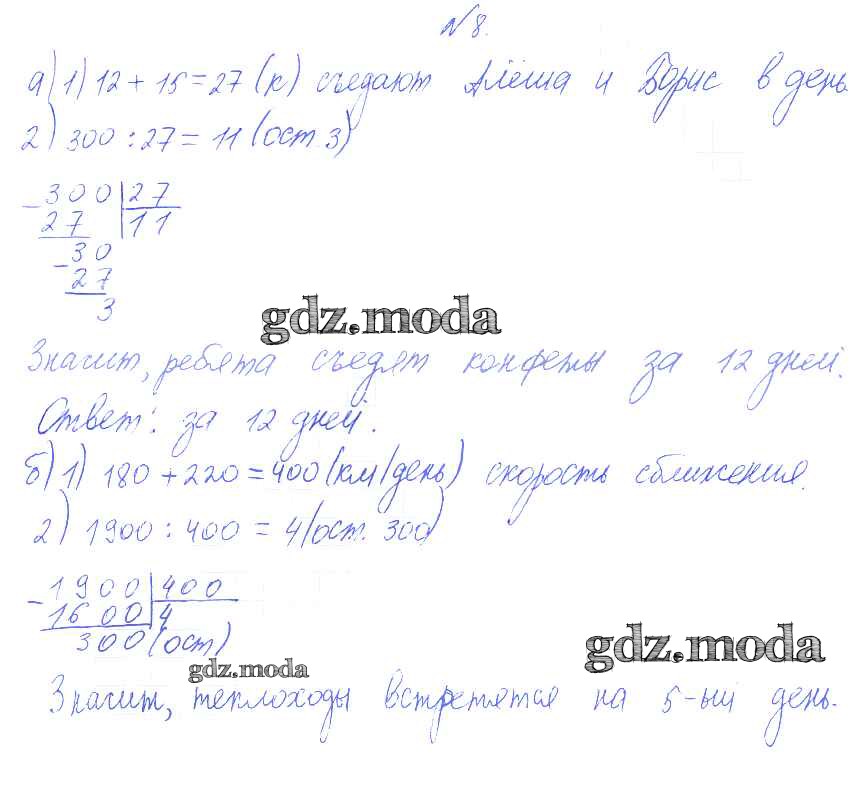 №8.
а) 1) 12 + 15 = 27 (к) съедают Алёша и Борис в день
2) 300 : 27 = 11 (ост. 3)
- 300 | 27
27 | 11
- 30
27
3
gdz.moda
Значит, ребята съедят конфеты за 12 дней.
Ответ: за 12 дней.
б) 1) 180 + 220 = 400 (км/день) скорость сближения.
2) 1900 : 400 = 4 (ост. 300)
- 1900 | 400
1600 | 4
300 (ост)
gdz.moda
gdz.moda
Значит, теплоходы встретятся на 5-ый день.